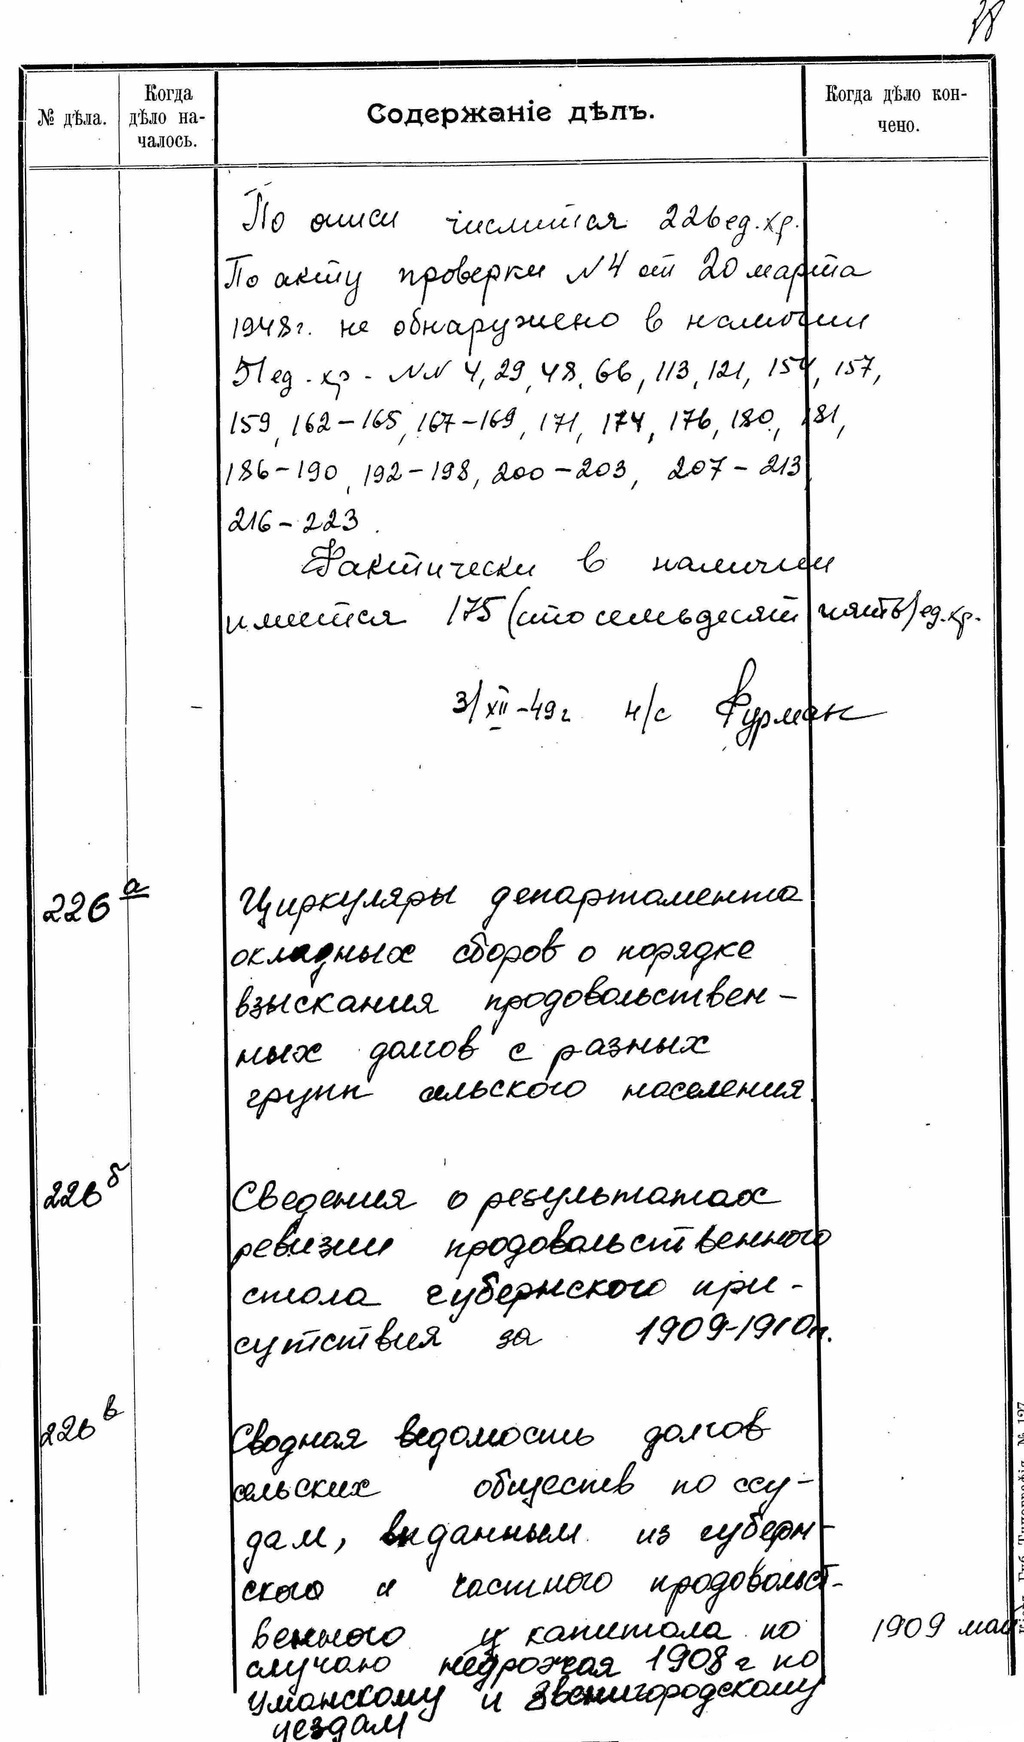 28
№ дѣла.
Когда
дѣло на-
чалось.
Содержаніе дѣлъ.
Когда дѣло кон-
чено.
По описи числится 226 ед. хр.
По акту проверки N 4 от 20 марта
1948 г. не обнаружено в наличии
51 ед. хр. - NN 4, 29, 48, 66, 113, 121, 154, 157,
159, 162-165, 167-169, 171, 174, 176, 180, 181,
186-190, 192-198, 200-203, 207-213,
216-223.
Фактически в наличии
имеется 175 (сто семьдесят пять) ед. хр.
3/XII-49 г. н/с Фурман
226 а
Циркуляры департамента
окладных сборов о порядке
взыскания продовольствен-
ных долгов с разных
групп сельского населения.
226 б
Сведения о результатах
ревизии продовольственного
стола губернского при-
сутствия за 1909-1910 гг.
226 в
Сводная ведомость долгов
сельских обществ по ссу-
дам, выданным из губерн-
ского и частного продовольст-
венного капитала по
1909 май
случаю недрожая 1908 г по
Уманскому и Звенигородскому
уездам
Губ. Типографія. № 127